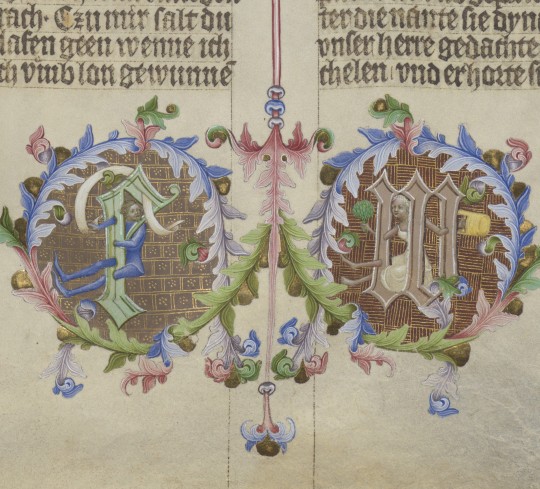 rach · Czu mir salt du
lafen geen wenne ich
ch vmb lon gewunne
ter die nante sie dyn
vnser herre gedachte
chelen vnd erhorte si